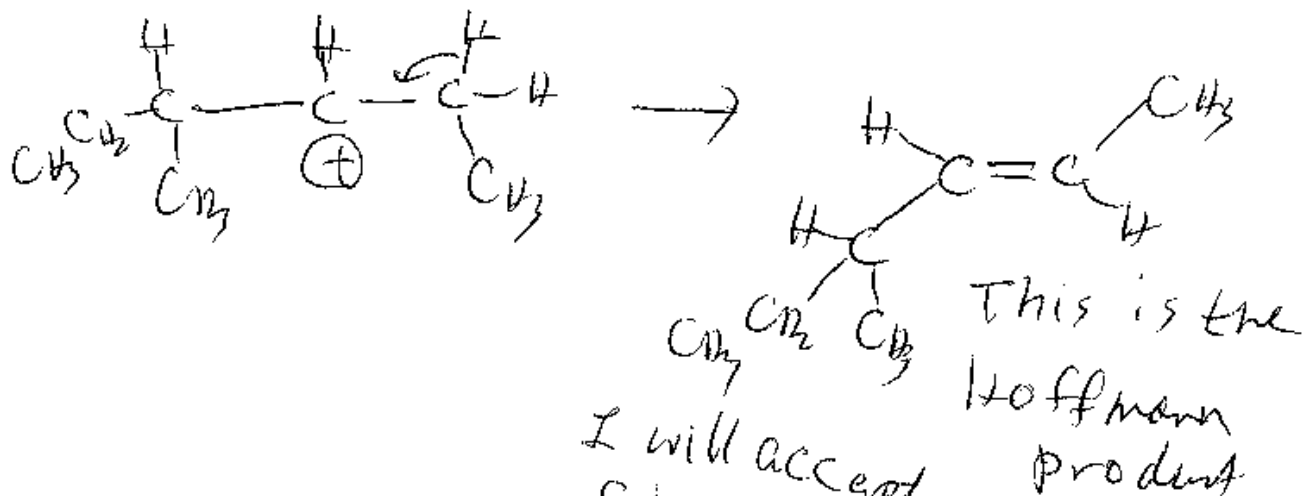 H H H
C C C H
CH3 CH2 CH3 + CH3
H C = C CH3
H C H
CH3 CH2 CH3
This is the
Hoffmann
product
I will accept